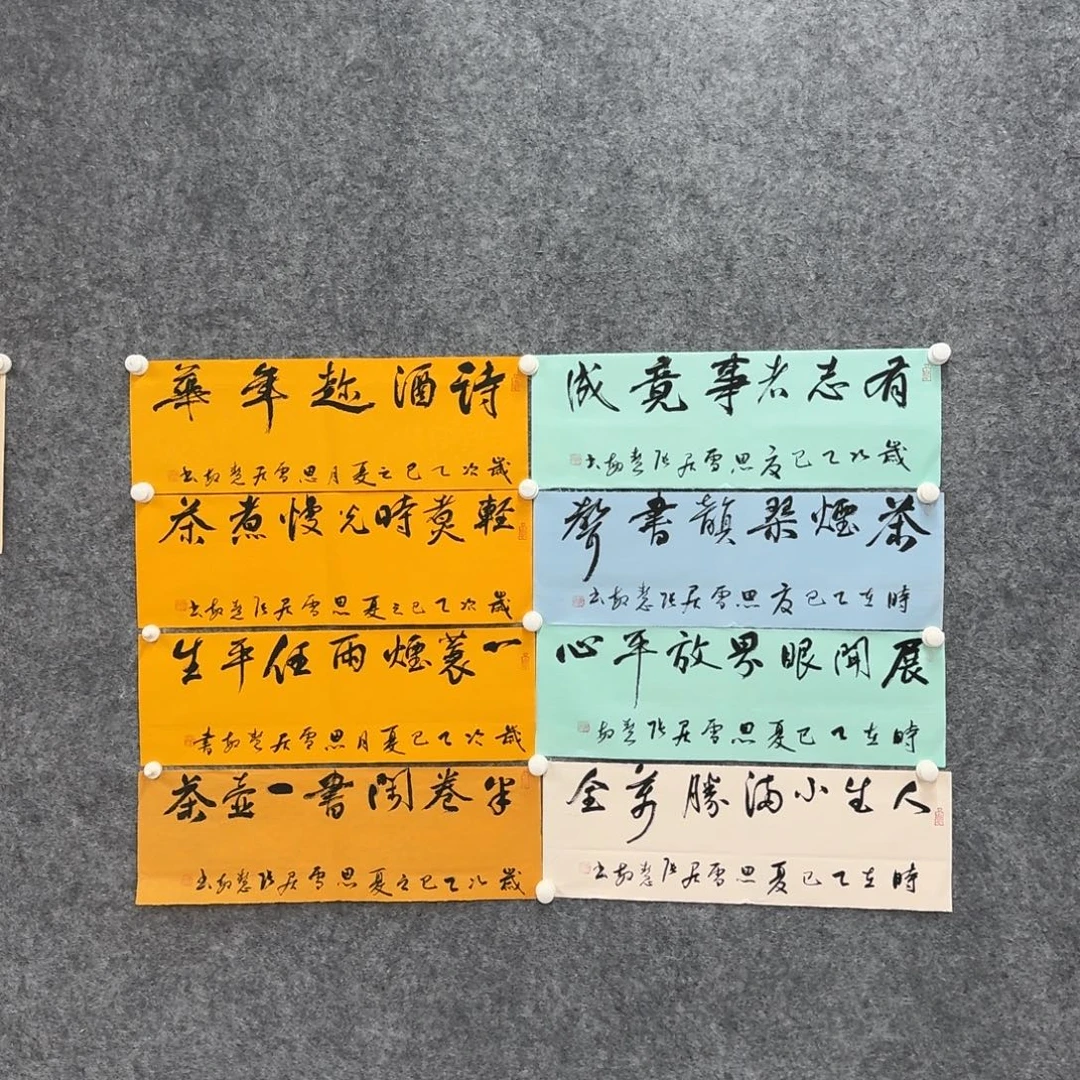 有志者事竟成
歲次乙巳夏思雪居张慧敏书
茶煙琴韻書聲
時在乙巳夏思雪居张慧敏书
展開眼界放平心
時在乙巳夏思雪居张慧敏
人生小滿勝萬全
時在乙巳夏思雪居张慧敏书
詩酒趁年華
歲次乙巳之夏月思雪居慧敏书
輕時光慢煮茶
歲次乙巳之夏思雪居张慧敏书
一蓑煙雨任平生
歲次乙巳夏月思雪居慧敏書
半卷閑書一壺茶
歲次乙巳之夏思雪居张慧敏书